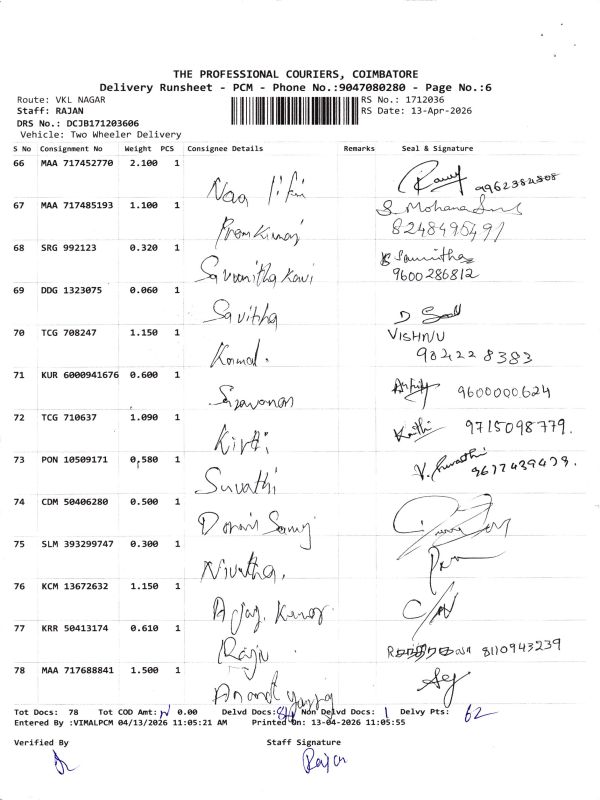 THE PROFESSIONAL COURIERS, COIMBATORE
Delivery Runsheet - PCM - Phone No.:9047080280 - Page No.:6
Route: VKL NAGAR RS No.: 1712036
Staff: RAJAN RS Date: 13-Apr-2026
DRS No.: DCJB171203606
Vehicle: Two Wheeler Delivery
S No Consignment No Weight PCS Consignee Details Remarks Seal & Signature
66 MAA 717452770 2.100 1
Naa
67 MAA 717485193 1.100 1 S. Mohana
Prem Kumar 8248495491
68 SRG 992123 0.320 1
Savonitha Kavi 9600286812
69 DDG 1323075 0.060 1
Savitha D
70 TCG 708247 1.150 1 VISHNU
Komal. 984228383
71 KUR 6000941676 0.600 1
Saravanan 9600000624
72 TCG 710637 1.090 1
Kirthi Keerthi 9715098779.
73 PON 10509171 0,580 1
Survathi V. Survathi 9677439479.
74 CDM 50406280 0.500 1
75 SLM 393299747 0.300 1
Nivatha.
76 KCM 13672632 1.150 1
Ajay. Kumar.
77 KRR 50413174 0.610 1
Raju 8110943239
78 MAA 717688841 1.500 1
Anand
Tot Docs: 78 Tot COD Amt: 0.00 Delvd Docs: Non Delvd Docs: 1 Delvy Pts: 62
Entered By :VIMALPCM 04/13/2026 11:05:21 AM Printed On: 13-04-2026 11:05:55
Verified By Staff Signature
Rajan